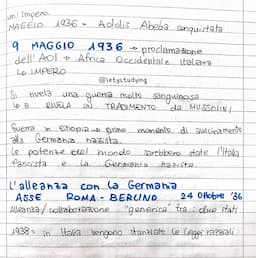 un' Impero.
MAGGIO 1936 = Addis Abeba conquistata
9 MAGGIO 1936 → proclamazione
dell'AOI → Africa Occidentale Italiana
↳ IMPERO
@letystudying
Si rivela una guerra molto sanguinosa
RIVELA UN TRADIMENTO da MUSSOLINI
Guerra in Etiopia → primo momento di avvicinamento
alla Germania nazista.
le potenze del mondo sarebbero state l'Italia
fascista e la Germania nazista.
L'alleanza con la Germania
ASSE ROMA - BERLINO 24 Ottobre '36
Alleanza / collaborazione "generica" tra i due stati
1938 = in Italia vengono stanziate le leggi razziali